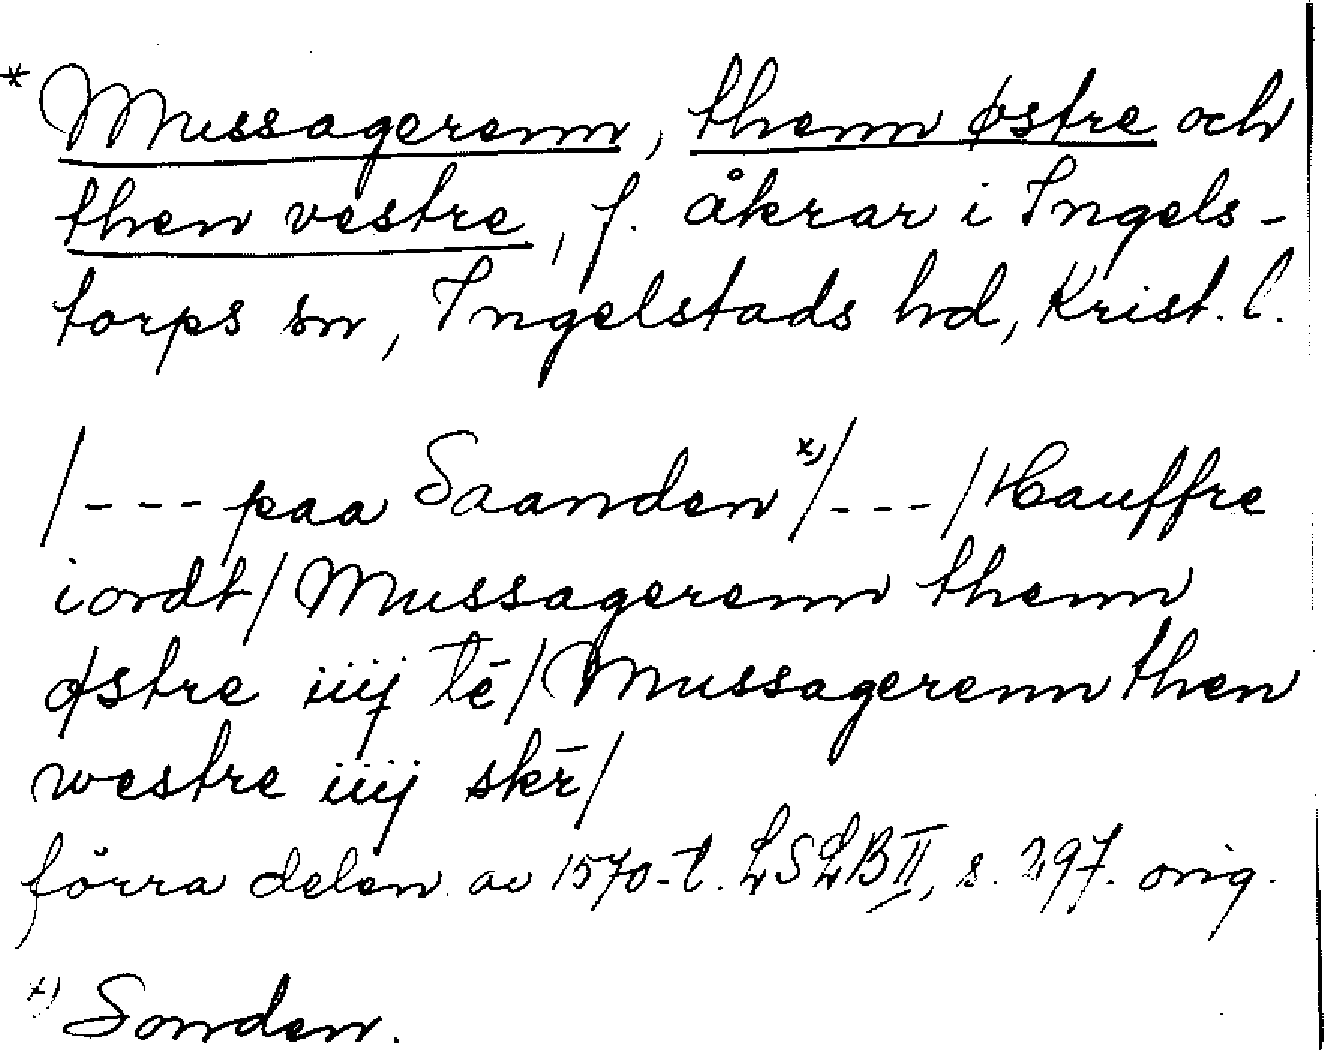 * Mussagerenn, thenn østre och
then vestre, f. åkrar i Ingels-
torps sn, Ingelstads hd, Krist. l.
/--- paa Saanden x)/---/Hauffre
iordt/Mussagerenn thenn
østre iiij tē/Mussagerenn then
westre iiij skr̄/
förra delen av 1570-t. LSLB II, s. 297. orig.
x) Sonden.